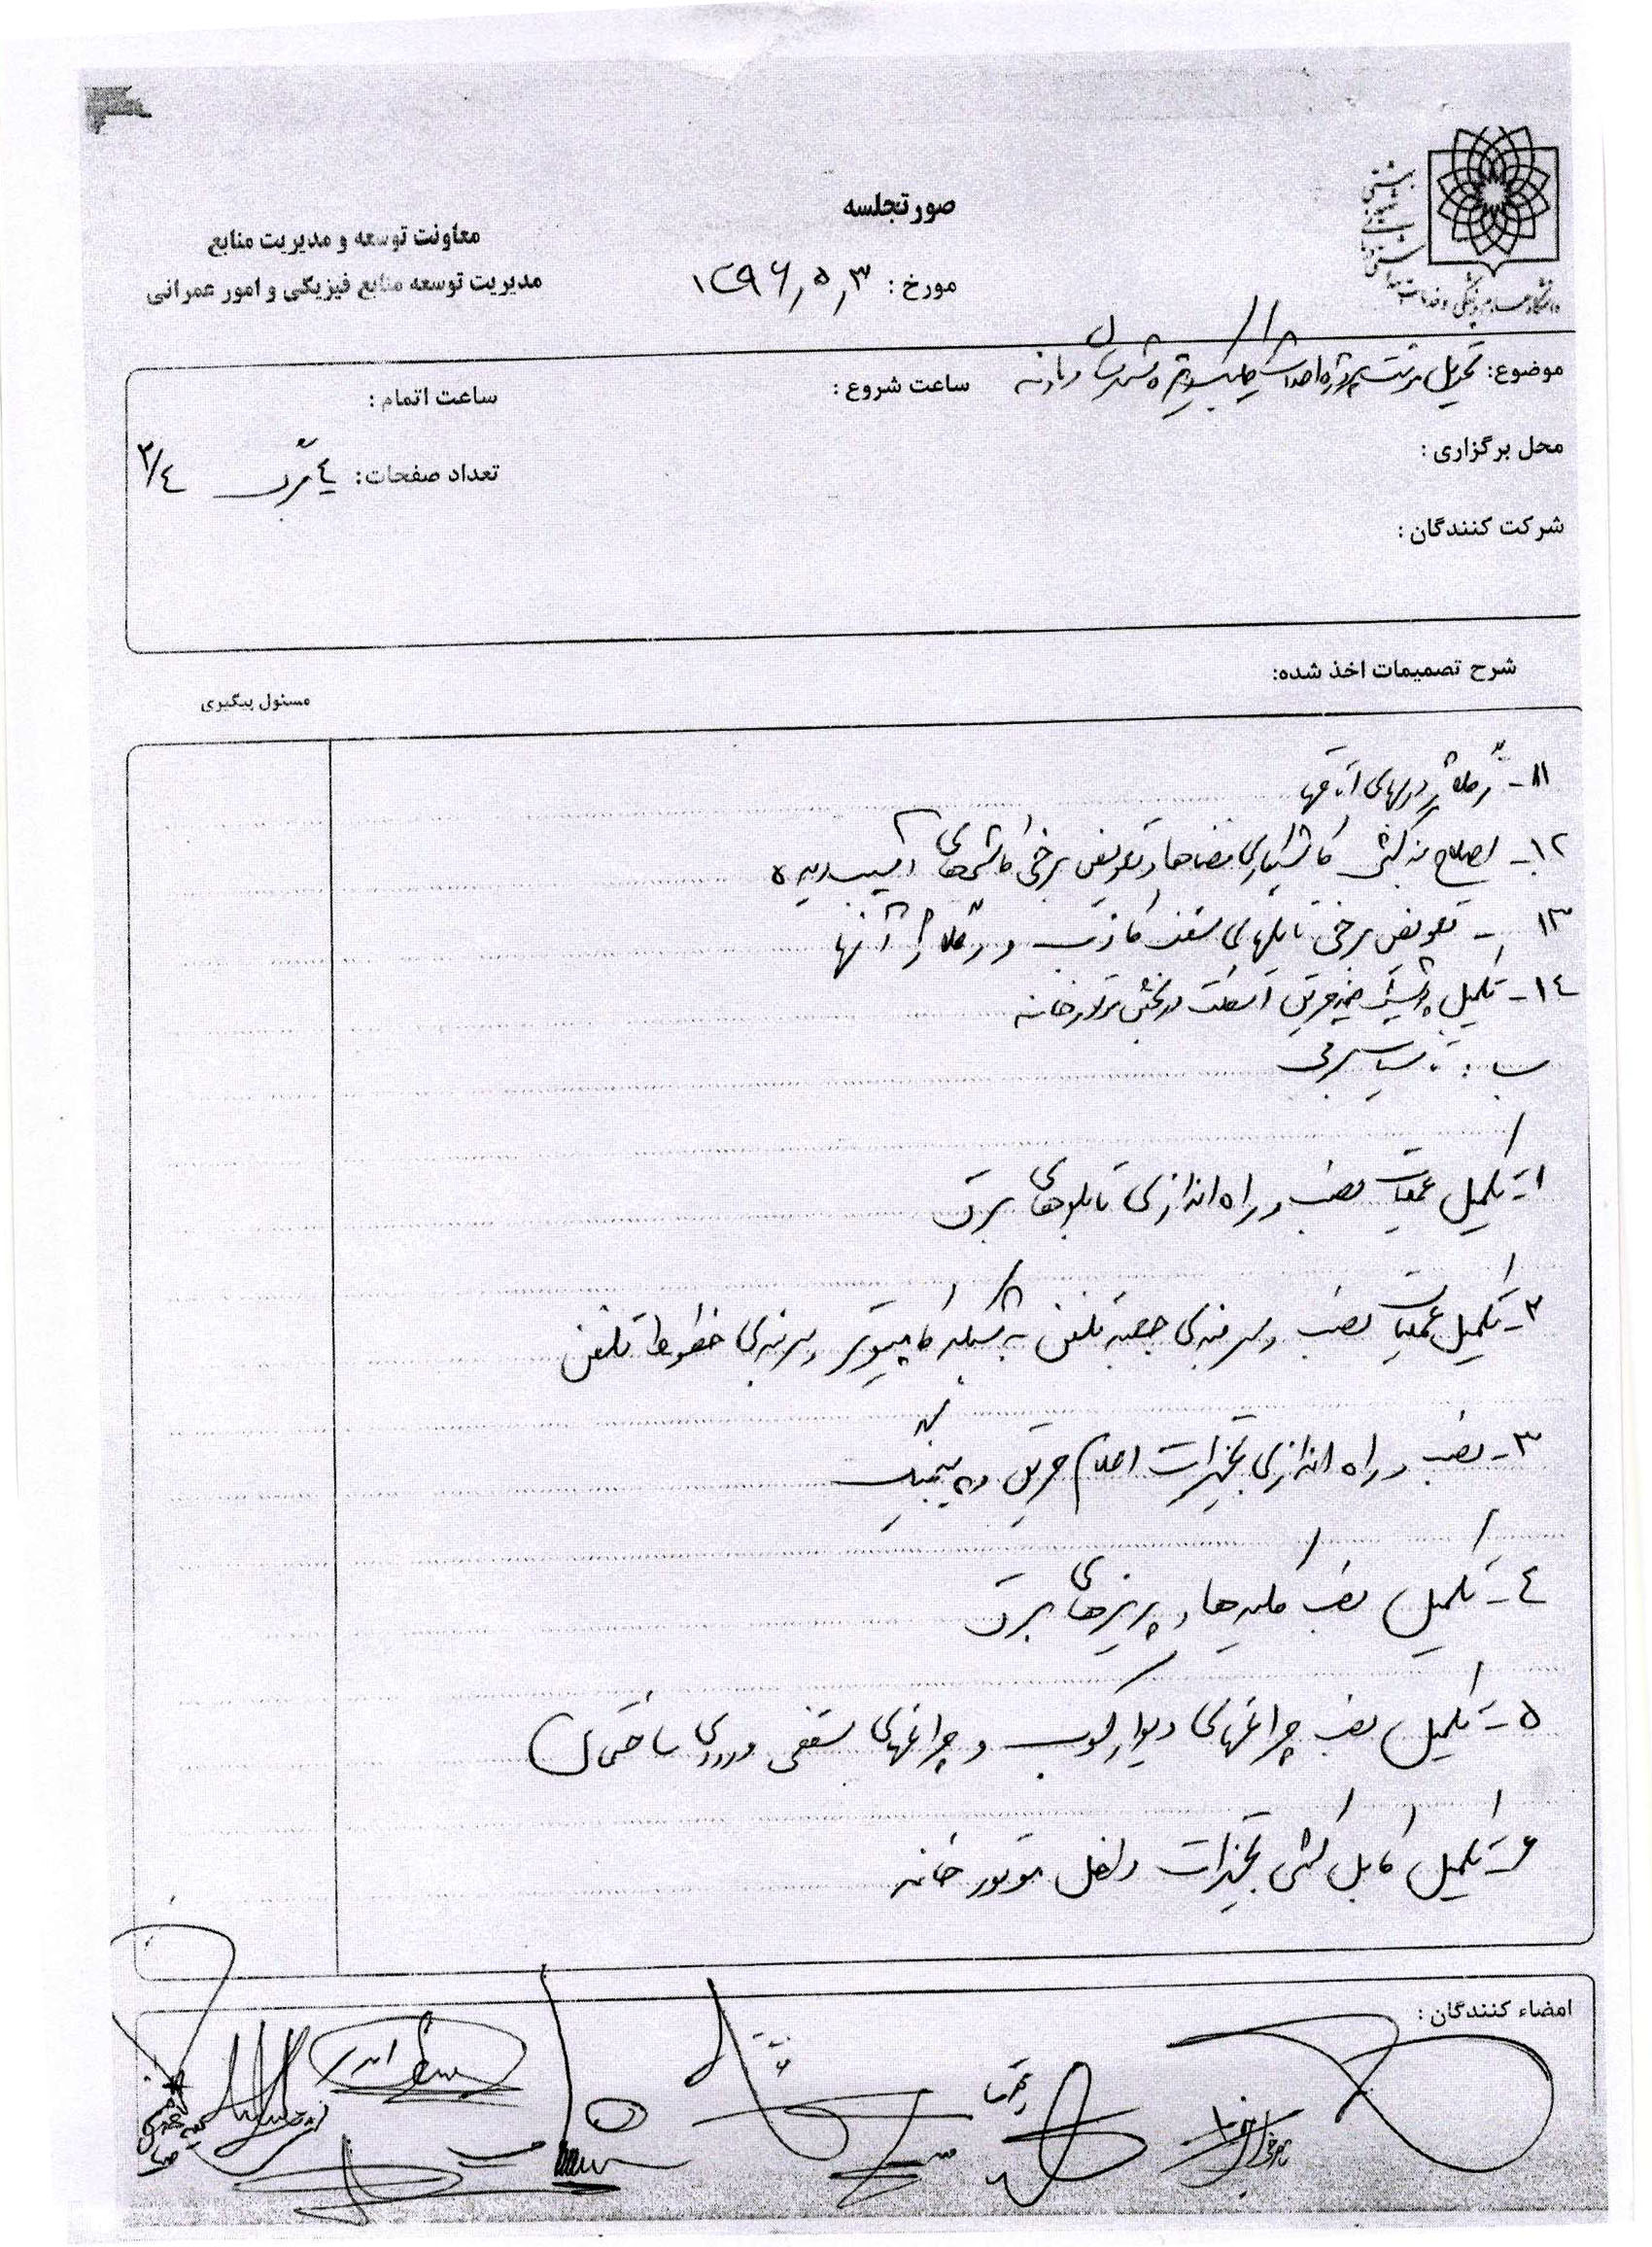 صورتجلسه
معاونت توسعه و مدیریت منابع
مدیریت توسعه منابع فیزیکی و امور عمرانی
مورخ: ۱۳۹۶,۵,۳
موضوع: تحویل موقت پروژه احداث
ساعت شروع:
ساعت اتمام:
محل برگزاری:
تعداد صفحات: ۲/۴
شرکت کنندگان:
شرح تصمیمات اخذ شده:
مسئول پیگیری
۱۱- رگلاژ دربهای اتاقها
۱۲- اصلاح بندکشی کاشیکاری فضاها و تعویض برخی کاشی‌های آسیب دیده
۱۳- تعویض برخی تایلهای سقف کاذب و رگلاژ آنها
۱۴- تکمیل پوشش ضد حریق اسکلت در بخش موتورخانه
ب: تاسیسات برقی
۱- تکمیل عملیات نصب و راه اندازی تابلوهای برق
۲- تکمیل عملیات نصب و سربندی جعبه تلفن به شبکه کامپیوتر و سربندی خطوط تلفن
۳- نصب و راه اندازی تجهیزات اعلام حریق و پیجینگ
٤- تکمیل نصب کلیدها و پریزهای برق
۵- تکمیل نصب چراغهای دیوارکوب و چراغهای سقفی ورودی ساختمان
۶- تکمیل کابل کشی تجهیزات داخل موتورخانه
امضاء کنندگان: